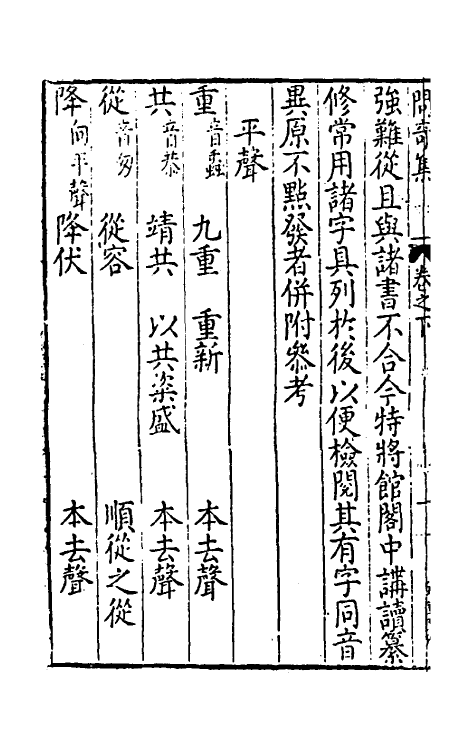 問奇集 卷之下
強難從且與諸書不合今特將館閣中講讀纂
修常用諸字具列於後以便檢閱其有字同音
異原不點發者併附參考
平聲
重音蟲 九重 重新 本去聲
共音恭 靖共 以共粢盛 本去聲
從音匆 從容 順從之從
降向平聲 降伏 本去聲